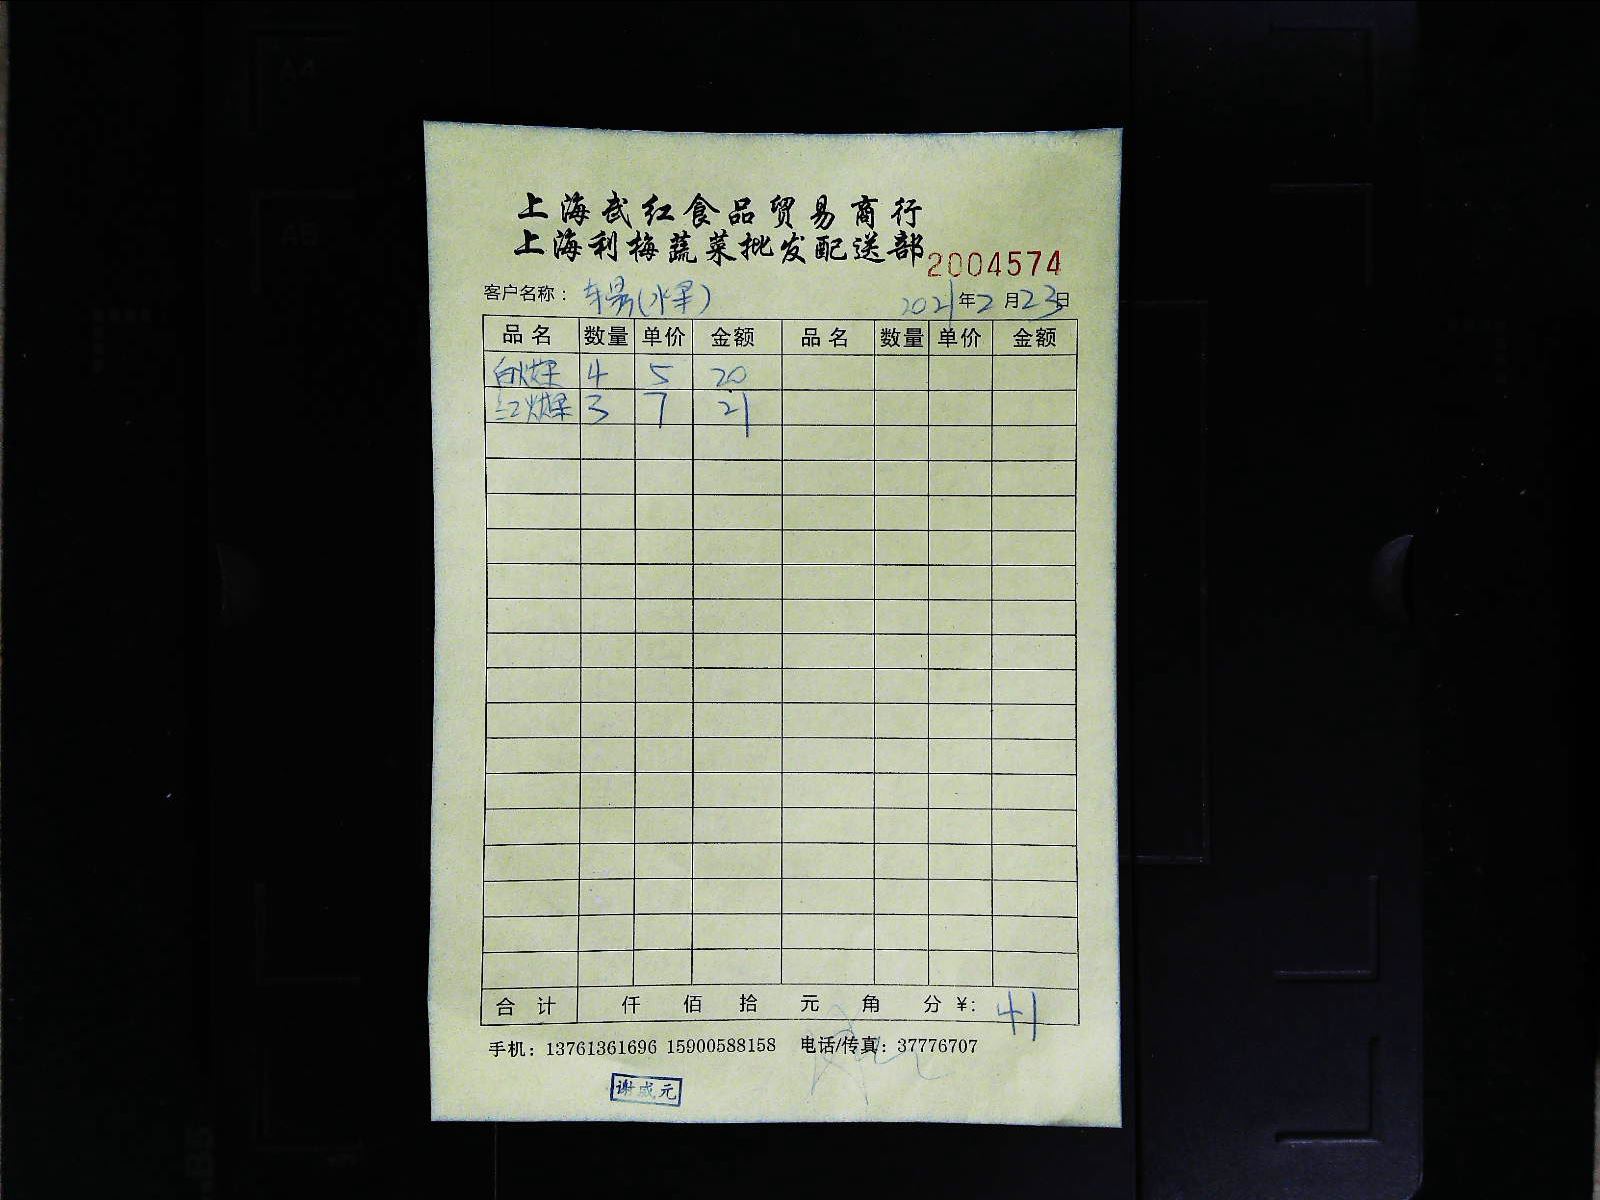 上海武红食品贸易商行
上海利梅蔬菜批发配送部
2004574
客户名称： (水果) 2021年2月23日
品名 数量 单价 金额 品名 数量 单价 金额
白火龙果 4 5 20
红火龙果 3 7 21
合计 仟 佰 拾 元 角 分 ¥: 41
手机：13761361696 15900588158 电话/传真：37776707
谢威元